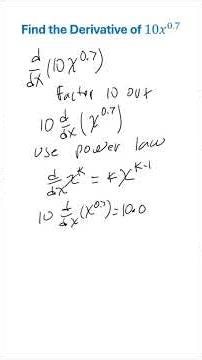 Find the Derivative of 10x^0.7
d/dx (10x^0.7)
Factor 10 out
10 d/dx (x^0.7)
use power law
d/dx x^k = k x^k-1
10 d/dx (x^0.7) = 10·0